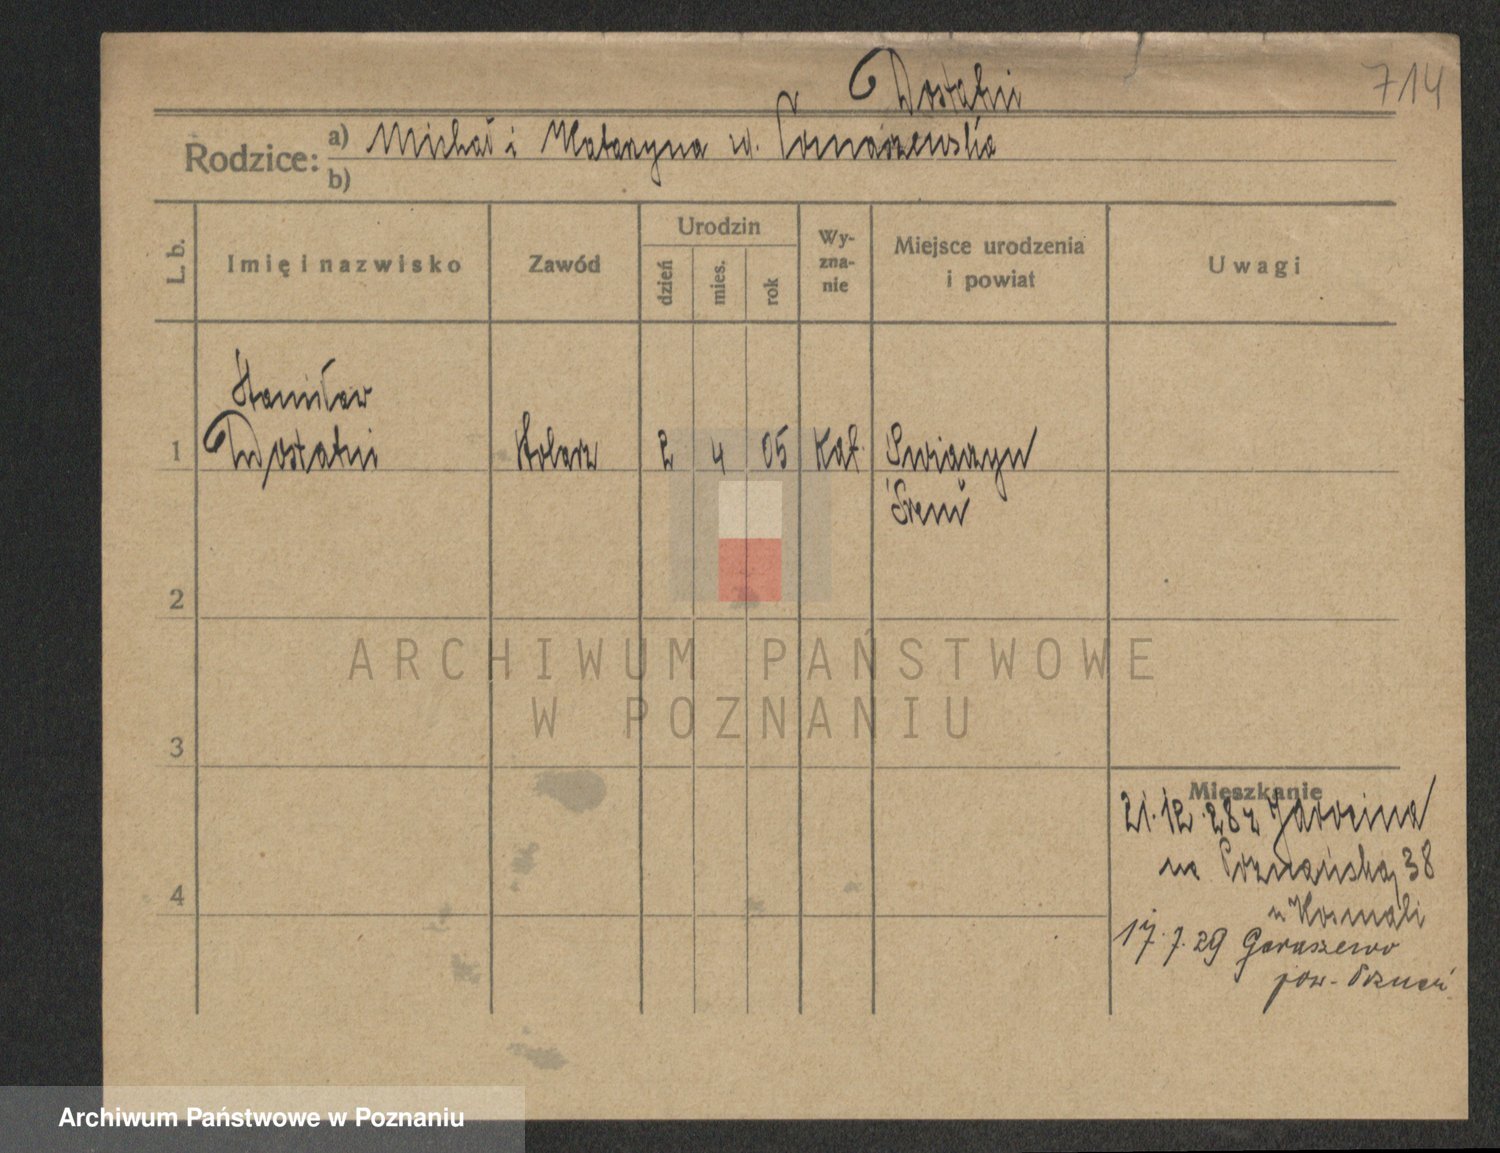 Dostatni
714
Rodzice:
a) Michał i Katarzyna
b)
L. b.
Imię i nazwisko
Zawód
Urodzin
dzień
mies.
rok
Wy-
zna-
nie
Miejsce urodzenia
i powiat
Uwagi
Stanisław
1 Dostatni Stolarz 2 4 05 Kat. Świączyń
Śrem
2
ARCHIWUM PAŃSTWOWE
W POZNANIU
3
Mieszkanie
21.12.28 z Jarocina
na Poznańska 38
4
u Kosmali
17.7.29 Garaszewo
pow. Poznań
Archiwum Państwowe w Poznaniu